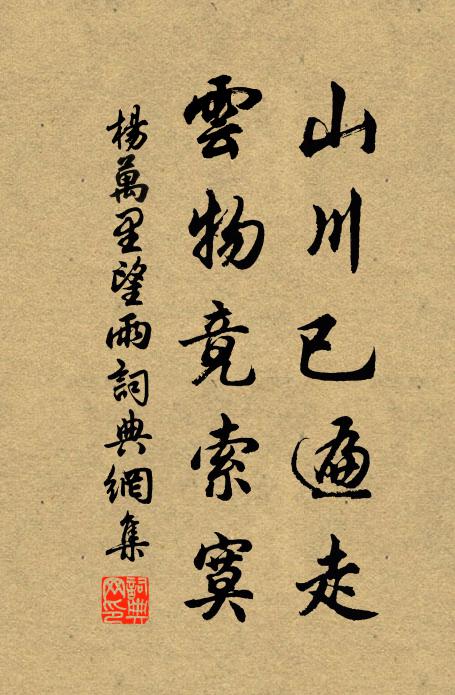 山川已遍走
雲物竟索寞
楊萬里望雨詞典網集
詞典網印